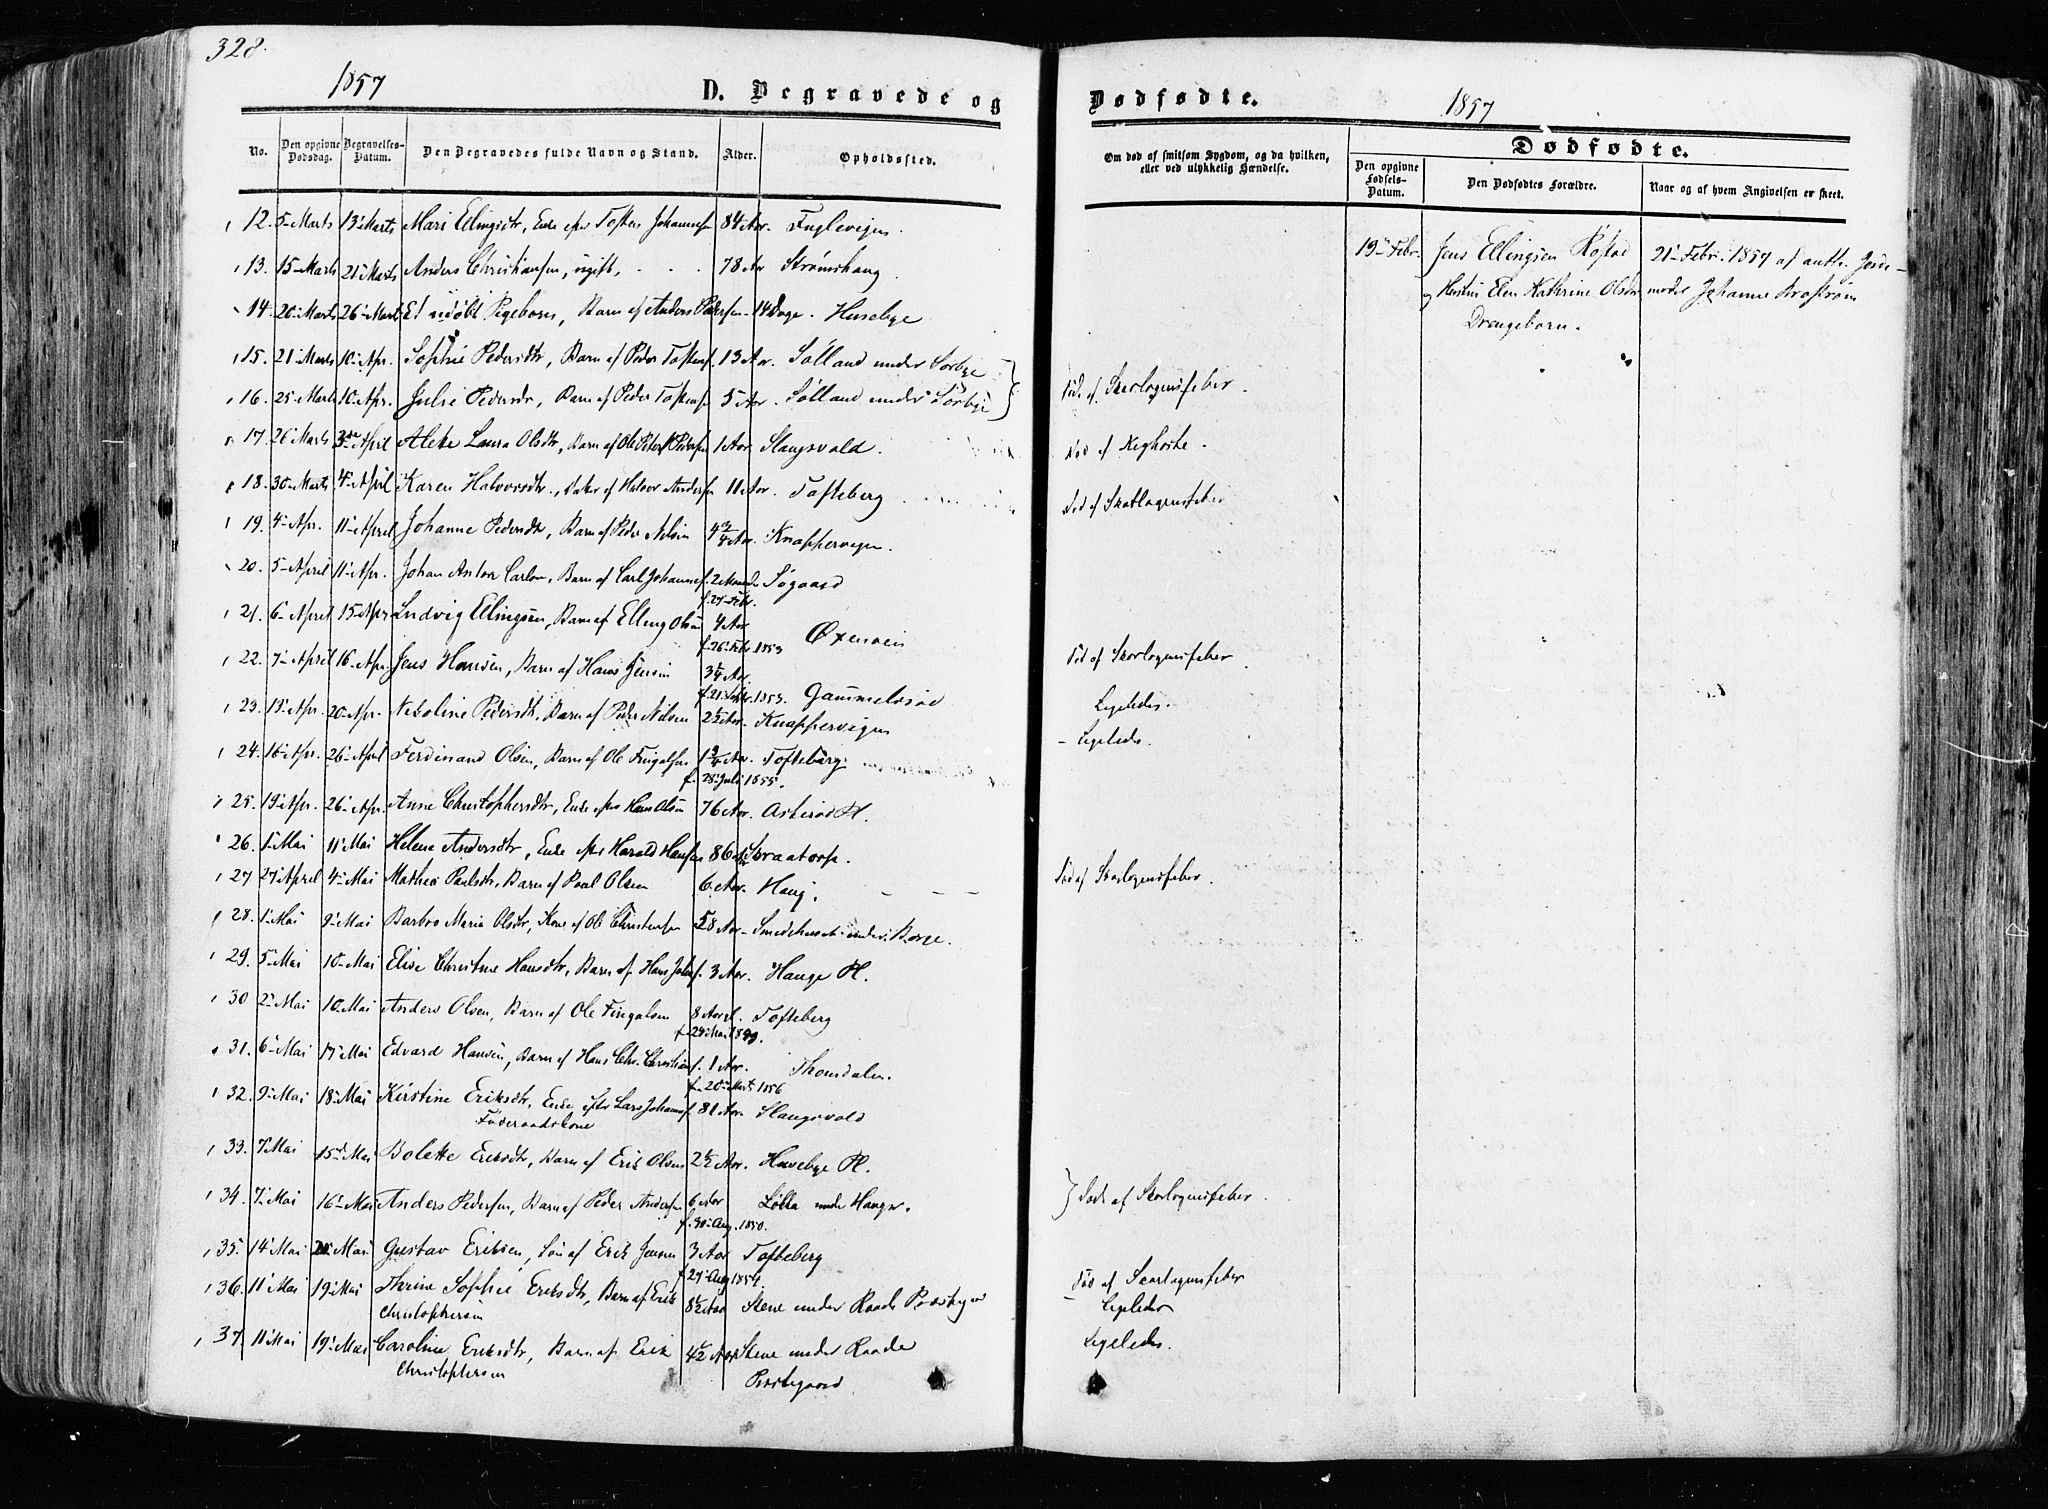 328.
1857
D. Begravede og
Dødfødte.
1857
No.
Den opgivne Dødsdag.
Begravelses-Datum.
Den Begravedes fulde Navn og Stand.
Alder.
Opholdssted.
Om død af smitsom Sygdom, og da hvilken, eller ved ulykkelig Hændelse.
Dødfødte.
Den opgivne Fødsels-Datum.
Den Dødfødtes Forældre.
Naar og af hvem Angivelsen er skeet.
12. 5-Marts 13-Marts Mari Ellingsdtr, Enke efter Tosten Johannesen 84 Aar. Fuglevigen.
13. 15-Marts 21-Marts Anders Christiansen, ugift, 78 Aar Strømshaug
14. 20-Marts 26-Marts Et udøbt Pigebarn, Barn af Anders Pedersen 14 Dage. Husebye
15. 21-Marts 10-Apr. Sophie Pedersdtr, Barn af Peder Tostens. 13 Aar. Sølland under Sørbye
16. 25-Marts 10-Apr. Julie Pedersdr, Barn af Peder Tostens 5 Aar. Sølland under Sørbye Død af Skarlagensfeber.
17. 26 Marts 3die April Laura Olsdtr, Barn af Ole Pedersen 1 Aar Slangsvold. Død af Kighoste.
18. 30-Marts 4-April Karen Halvorsdtr., Datter af Halvor Andersen 11 Aar. Tofteberg Død af Skarlagensfeber
19. 4-Apr. 11-April Johanne Pedersdtr, Barn af Peder Nilsen 4 3/4 Aar. Knappervigen.
20. 5-April 11-Apr. Johan Anton Carlsen, Barn af Carl Johannes. 2 Maaneder Søgaard
f. 27-Febr.
21. 6-April 15-Apr Ludvig Ellingsen, Barn af Elling Olsen 4 Aar Oxenøen
f. 26-Febr. 1853
22. 7-April 16-Apr. Jens Hansen, Barn af Hans Jensen Aar. Død af Skarlagensfeber
f. 21 1853. Gammelsrød Ligeledes.
23. 13-Apr. 20-Apr. Pedersdtr, Barn af Peder Nilsen 2 1/2 Aar. Knappervigen Ligeleds.
24. 16-Apr. 26-April Ferdinand Olsen, Barn af Ole Fingalsen 1 3/4 Aar. Tofteberg
f. 28-Juli 1855.
25. 19-Apr. 26-Apr. Anne Christophersdtr, Enke efter Hans Olsen 76 Aar. Askerød Pl.
26. 1-Mai 11-Mai Helene Andersdtr, Enke efter Harald Hansen 86 Aar Skraatorp.
27 27 April 4-Mai Mathea Paulsdtr, Barn af Paul Olsen 6. Aar. Haug. Død af Skarlagensfeber.
28. 1-Mai 9-Mai Barbro Maria Olsdtr, Kone af Ole Christensen 58 Aar Smedehuset under Borge.
29. 5-Mai 10-Mai Elise Christine Hansdtr, Barn af Hans Johs. 3 Aar. Hauge Pl.
30 2-Mai 10-Mai Anders Olsen, Barn af Ole Fingalsen 8 Aar Tofteberg
f. 24-Mai 1849.
31. 6-Mai 17-Mai Edvard Hansen, Barn af Hans Chr. Christians. 1 Aar. Thomsdalen.
f. 20-Marts 1856
32. 9-Mai 18-Mai Kirstine Eriksdtr, Enke efter Lars Johanns. 81 Aar. Slangsvold
Føderaadskone
33. 7-Mai 15-Mai Bolette Eriksdtr, Barn af Erik Olsen 2 1/2 Aar. Husebye Pl.
34. 7-Mai 16-Mai Anders Pedersen, Barn af Peder Andersen 6 Aar Løkka under Hauge. Døde af Skarlagensfeber.
f. 30-Aug. 1850.
35. 14 Mai Mai Gustav Eriksen, Søn af Erik Jensen 3 Aar Tofteberg
f. 27-Aug 1854. Død af Skarlagensfeber
36. 11 Mai 19-Mai Thrine Sophie Eriksdtr, Barn af Erik 8 1/2 Aar Stene under Raade Præstegaard Ligeledes
Christophersen
37. 11-Mai 19-Mai Caroline Eriksdtr, Barn af Erik 4 1/2 Aar Stene under Raade Ligeledes.
Christophersen Præstegaard
19-Febr. Jens Ellingsen Røstad 21-Febr. 1857 af antt. Jorde-
og Hustru Elen Kathrine Olsdtr moder Johanne
Drengebarn.